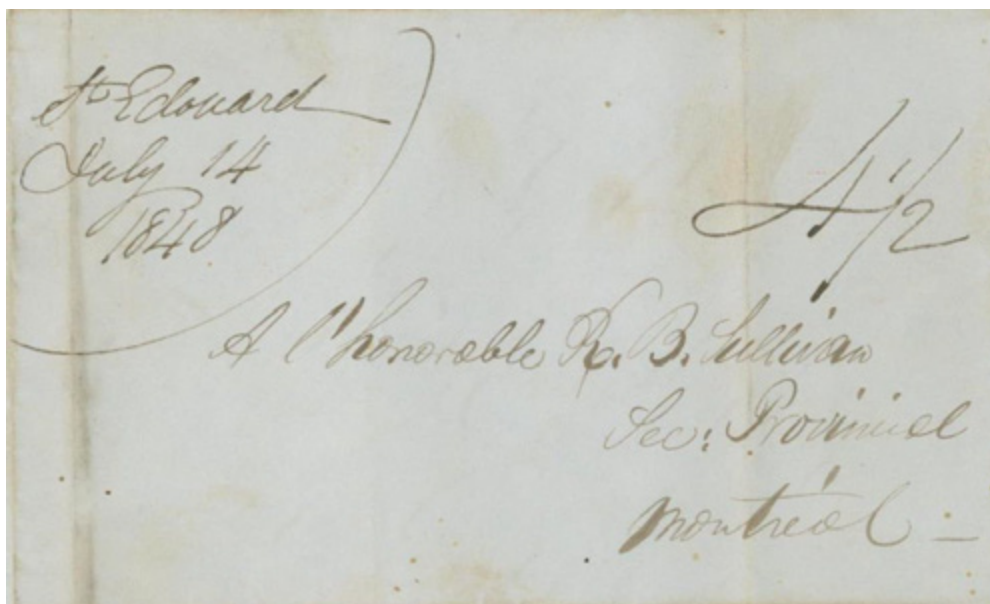 St Edouard
July 14
1848
4 1/2
A l'honorable R. B. Sullivan
Sec: Provincial
Montréal —